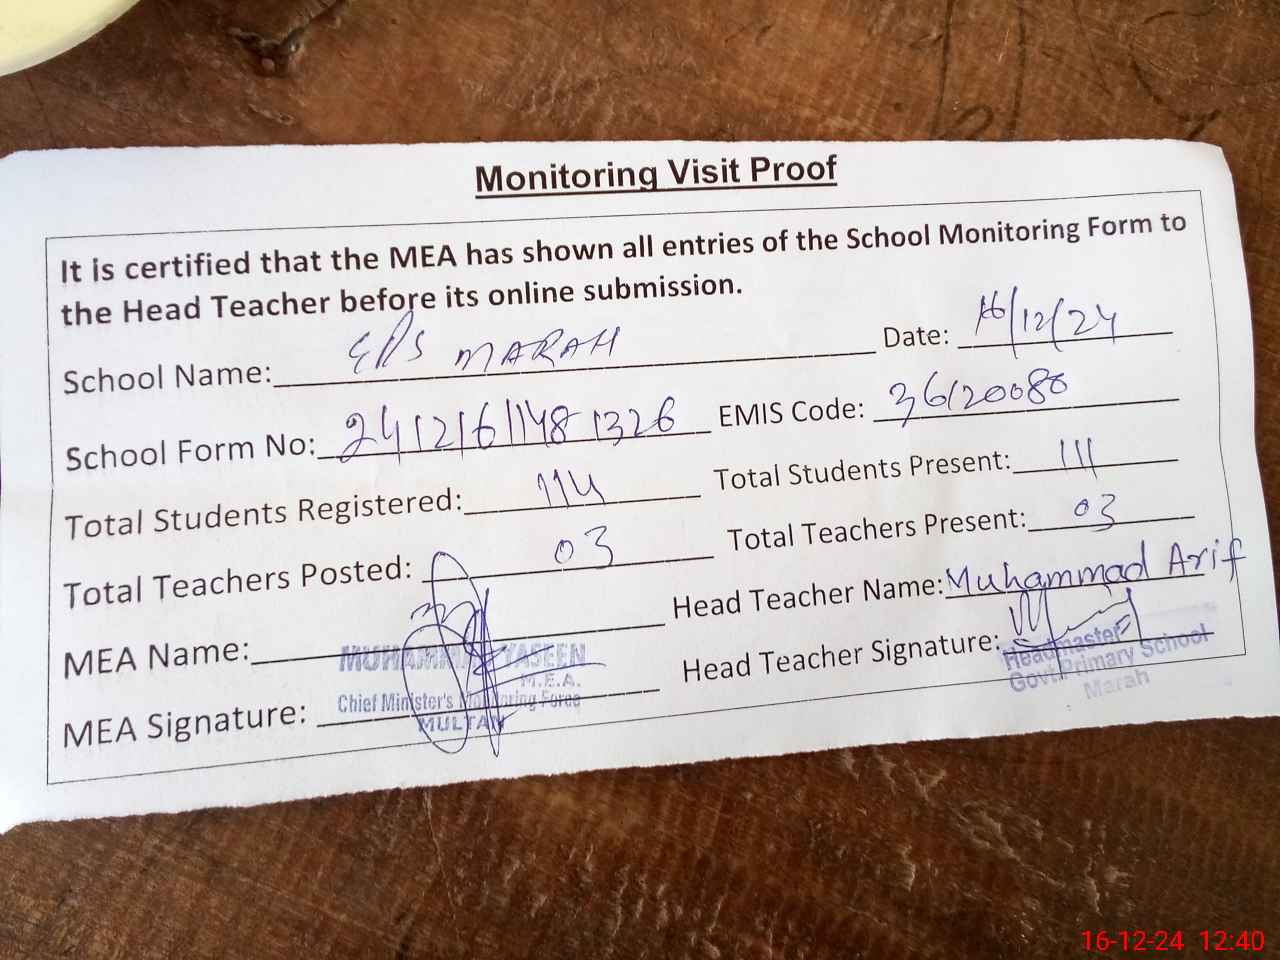 Monitoring Visit Proof
It is certified that the MEA has shown all entries of the School Monitoring Form to
the Head Teacher before its online submission.
School Name: GPS MARAH Date: 16/12/24
School Form No: 2412161148 1326 EMIS Code: 36120080
Total Students Registered: 114 Total Students Present: 111
Total Teachers Posted: 03 Total Teachers Present: 03
MEA Name: Head Teacher Name: Muhammad Arif
MEA Signature: Head Teacher Signature:
MUHAMMAD YASEEN
M.E.A.
Chief Minister's Monitoring Force
MULTAN
Headmaster
Govt. Primary School
Marah
16-12-24 12:40